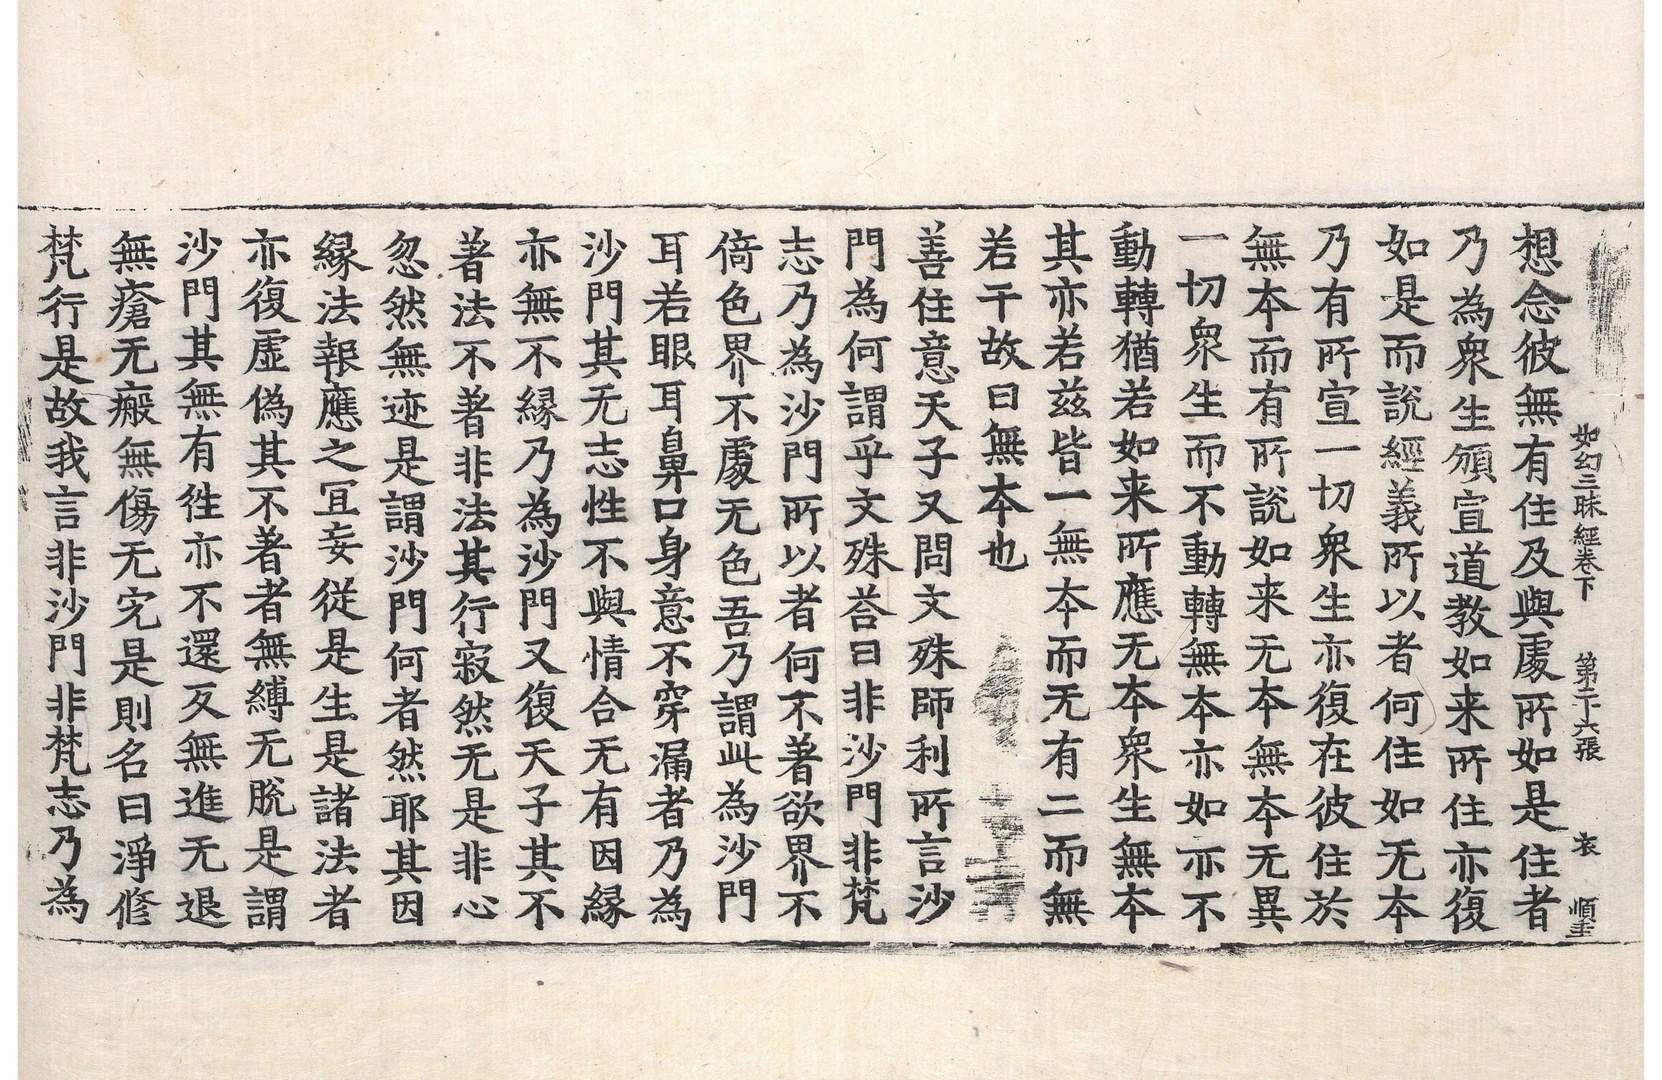 如幻三昧經卷下　第二十六張　衣　順圭
想念彼無有住及與處所如是住者
乃為衆生頒宣道教如来所住亦復
如是而說經義所以者何住如无本
乃有所宣一切衆生亦復在彼住於
無本而有所說如来无本無本无異
一切衆生而不動轉無本亦如亦不
動轉猶若如来所應无本衆生無本
其亦若兹皆一無本而无有二而無
若干故曰無本也
善住意天子又問文殊師利所言沙
門為何謂乎文殊荅曰非沙門非梵
志乃為沙門所以者何不著欲界不
倚色界不處无色吾乃謂此為沙門
耳若眼耳鼻口身意不穿漏者乃為
沙門其无志性不與情合无有因緣
亦無不緣乃為沙門又復天子其不
著法不著非法其行寂然无是非心
忽然無迹是謂沙門何者然耶其因
緣法報應之冝妄從是生是諸法者
亦復虛偽其不著者無縛无脫是謂
沙門其無有徃亦不還反無進无退
無瘡无瘢無傷无完是則名曰淨修
梵行是故我言非沙門非梵志乃為